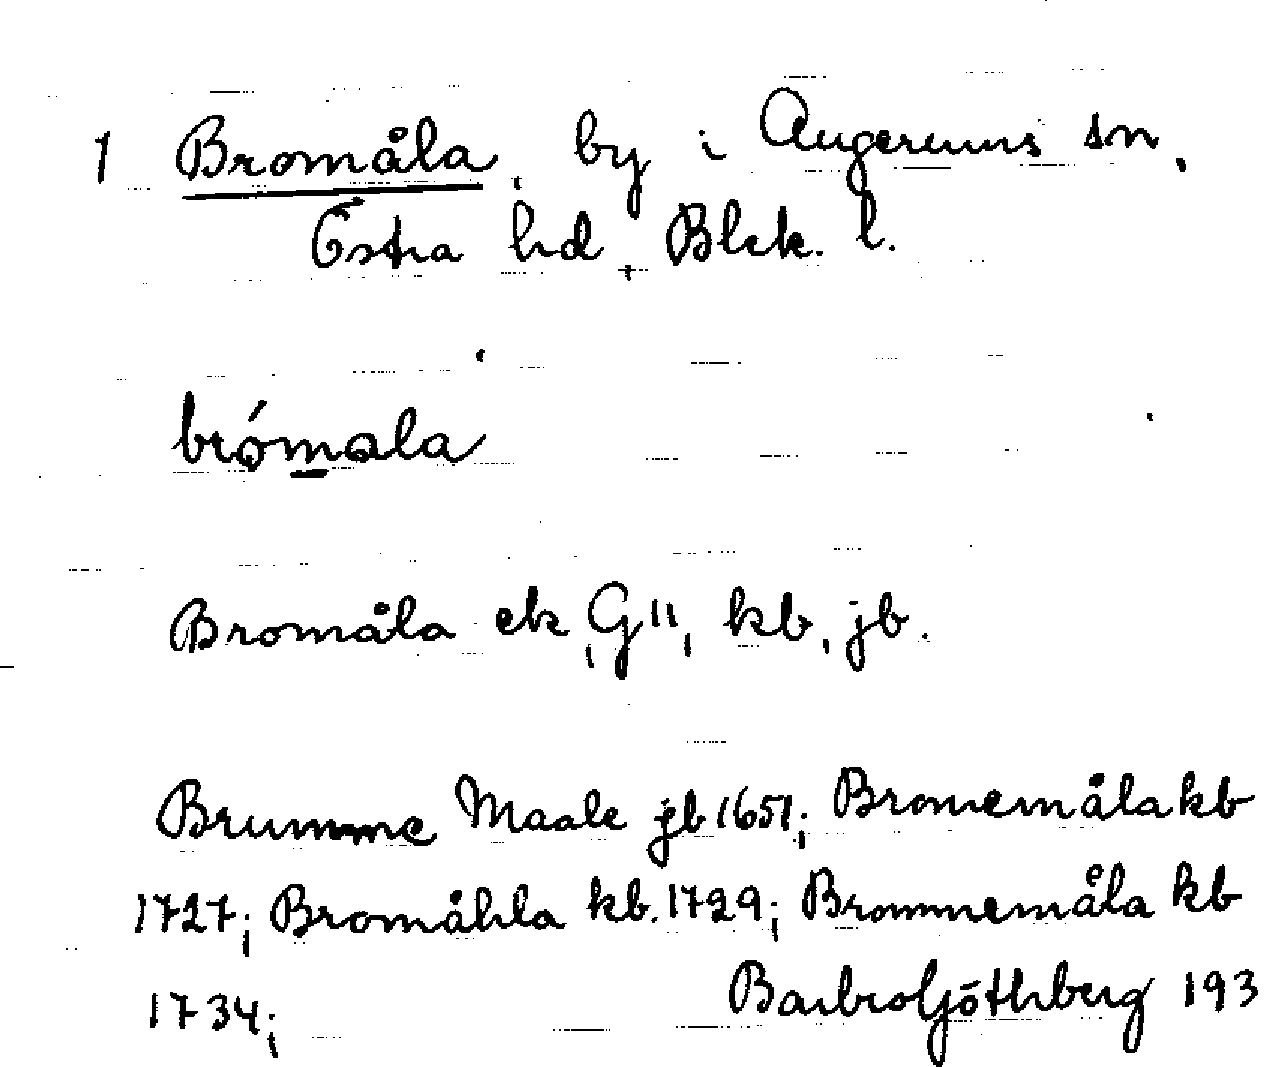 1 Bromåla, by i Augerums sn,
Östra hd, Blek. l.
brómala
Bromåla ek, G", kb, jb.
Brumme Maale jb 1651; Bromemåla kb
1727; Bromåhla kb. 1729; Brommemåla kb
1734; Barbro Göthberg 193